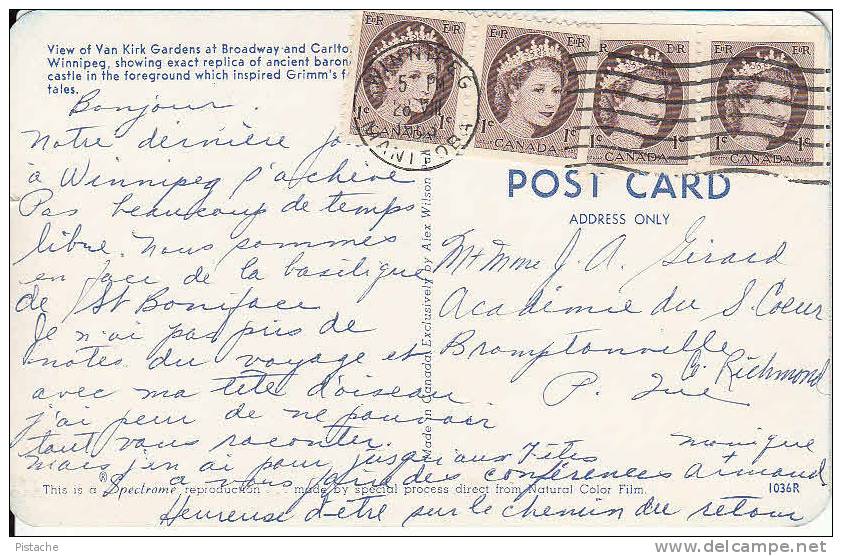 View of Van Kirk Gardens at Broadway and Carlto
Winnipeg, showing exact replica of ancient baron
castle in the foreground which inspired Grimm's f
tales.
Bonjour.
Notre dernière jo
à Winnipeg s'achève
Pas beaucoup de temps
libre. Nous sommes
en face de la basilique
de St Boniface
Je n'ai pas pris de
notes du voyage et
avec ma tête d'oiseau
j'ai peur de ne pouvoir
tout vous raconter.
mais j'en ai pour jusqu'aux Fêtes
à vous faire des conférences
Heureuse d'être sur le chemin du retour
Monique
Armand
This is a Spectrome® reproduction . . . made by special process direct from Natural Color Film.
1036R
Made in Canada Exclusively by Alex Wilson
EIIR EIIR
1c 1c
CANADA
EIIR EIIR
1c 1c
CANADA
EIIR EIIR
1c 1c
CANADA
EIIR EIIR
1c 1c
CANADA
WINNIPEG
5 PM
28
MANITOBA
POST CARD
ADDRESS ONLY
M+Mme J. A. Girard
Académie du S. Coeur
Bromptonville
C. Richmond
P. Qué
Pistache
delcampe.net